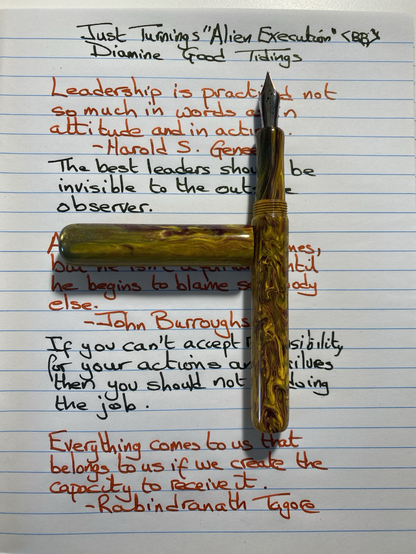 Just Turnings "Alien Execution" <BB>
Diamine Good Tidings
Leadership is practi d not
so much in words in
attitude and in acti
-Harold S. Gene
The best leaders shou be
invisible to the out e
observer.
A mes,
but he isn't a until
he begins to blame so body
else.
-John Burroughs
If you can't accept r sibility,
for your actions an
then you should not doing
the job.
Everything comes to us that
belongs to us if we create the
capacity to receive it.
-Rabindranath Tagore